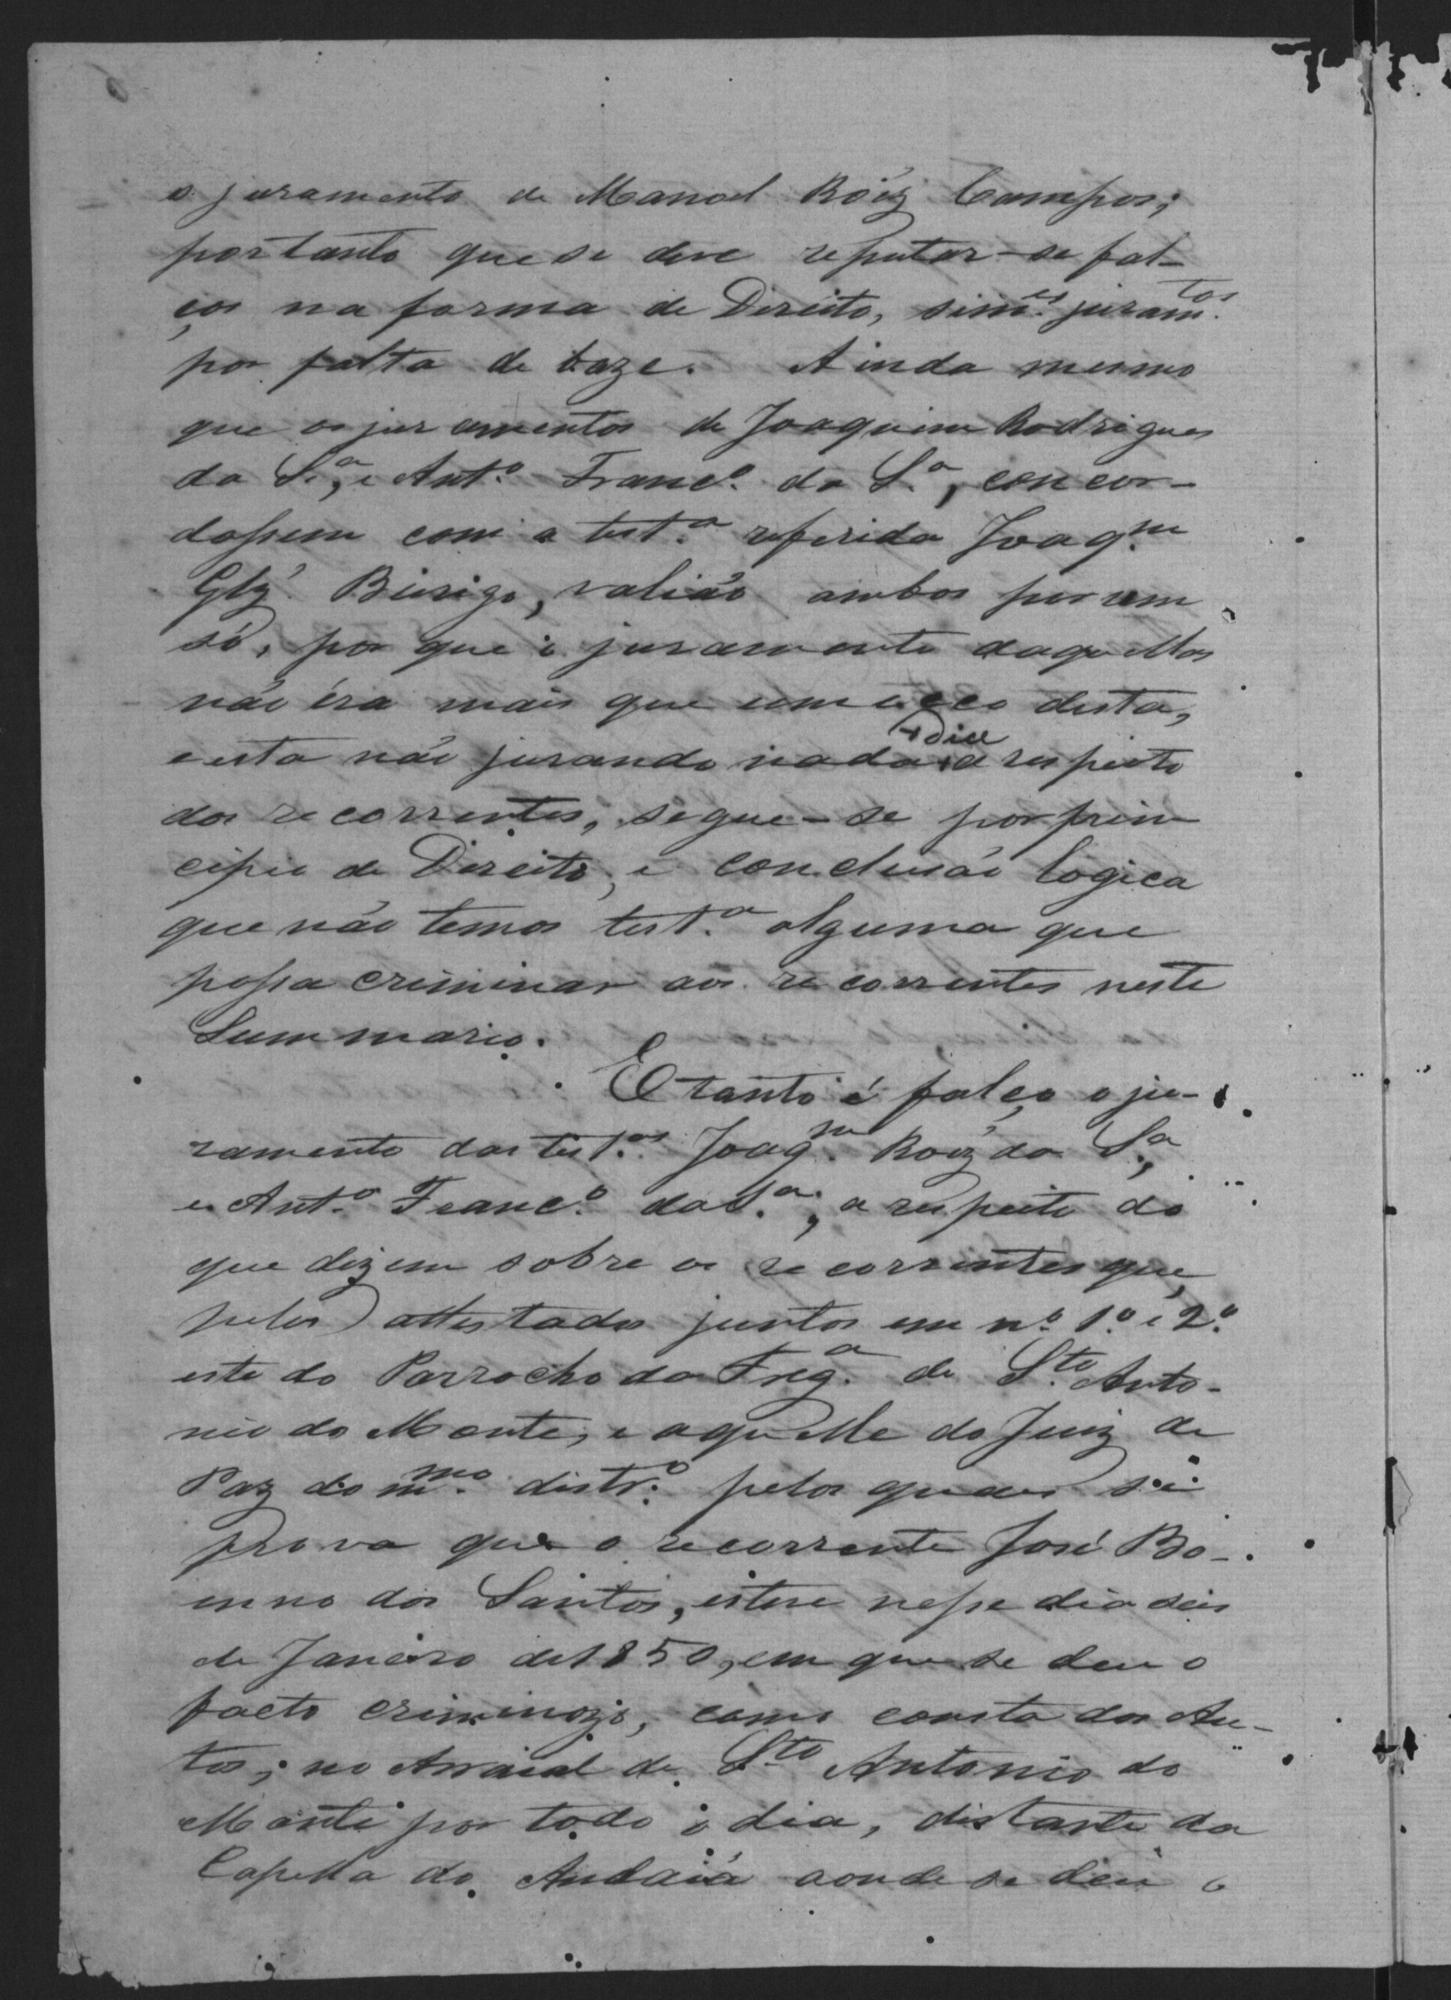 o juramento de Manoel Roiz Campos;
portanto que se deve reputar-se fal-
ços na forma de Direito, sim.es juram.tos
por falta de baze. Ainda mesmo
que os juramentos de Joaquim Rodrigues
da S.ª, e Ant.º Franc.º da S.ª, concor-
dassem com a test.ª referida Joaq.m
Glz'. , valião ambos por um
só, por que o juramento daquellas
não éra mais que um ecco desta,
e esta não jurando nada +dice a respeito
dos recorrentes, segue-se por prin
cipio de Direito, e conclusão logica
que não temos test.ª alguma que
possa criminar aos recorrentes neste
Summario.
E tanto é falço o ju-
ramento das test.as Joaq.m Roiz da S.ª,
e Ant.º Franc.º da S.ª, a respeito do
que dizem sobre os recorrentes que,
pelos attestados juntos em nº 1.º e 2.º
este do Parrocho da Freg.ª de S.to Anto-
nio do Monte, e aquelle do Juiz de
Paz do m.mo distr.º pelos quaes se
prova que o recorrente José Bo-
enno dos Santos, esteve nesse dia seis
de Janeiro de 1850, em que se deu o
facto criminozo, como consta dos Au-
tos; no Arraial de S.to Antonio do
Monte por todo o dia, distante da
Capella do Andaiá aonde se deu o